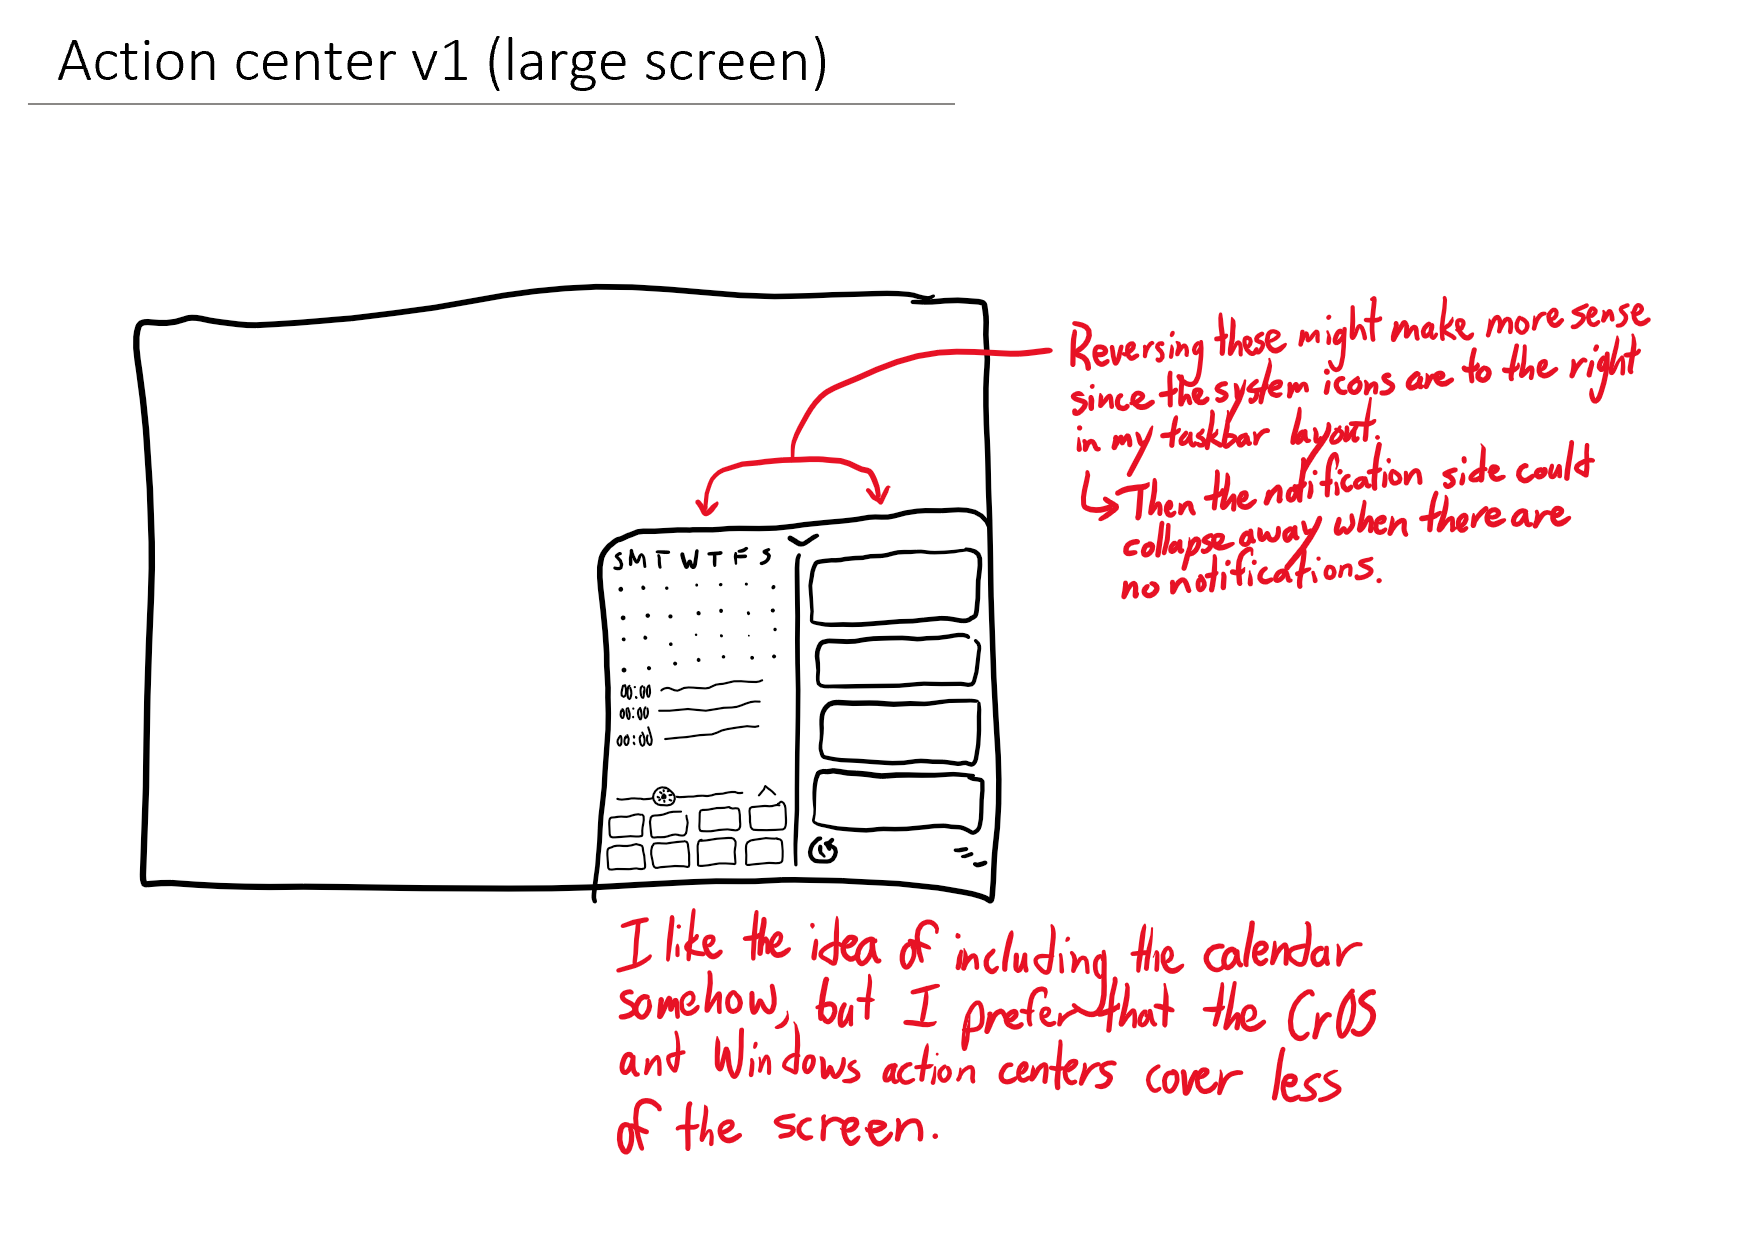 Action center v1 (large screen)
Reversing these might make more sense
since the system icons are to the right
in my taskbar layout.
Then the notification side could
collapse away when there are
no notifications.
S M T W T F S
00:00
00:00
00:00
I like the idea of including the calendar
somehow, but I prefer that the CrOS
and Windows action centers cover less
of the screen.